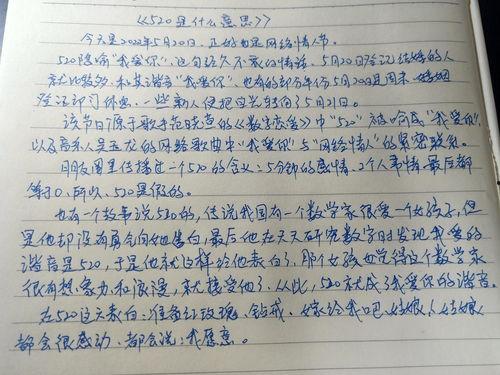 《520是什么意思》
今天是2022年5月20日,正好也是网络情人节。
520隐喻"我爱你",这句话久不衰的情话,5月20日登记结婚的人
就比较多,和其谐音"我爱你",也有的部分年份5月20日是周末,婚姻
登记部门休息,一些新人便把这光转向5月21日。
该节日源于歌手范晓萱的《数字恋爱》中"520"被喻成"我爱你",
以及音乐人吴玉龙的网络歌曲中"我爱你"与"网络情人"的紧密联系。
朋友圈里传播过一个520的含义:5分钟的感情,2个人事情,最后都
等于0,所以,520是假的。
也有一个故事说520的,传说我国有一个数学家很爱一个女孩子,但
是他却没有勇气向她告白,最后他在天天研究数字时发现我爱你的
谐音是520,于是他就这样给他表白了,那个女孩也觉得这个数学家
很有想象力和浪漫,就接受他了,从此,520就成了我爱你的谐音。
在520这天表白:准备红玫瑰、钻戒、嫁给我吧,姑娘,姑娘
都会很感动,都会说:我愿意。